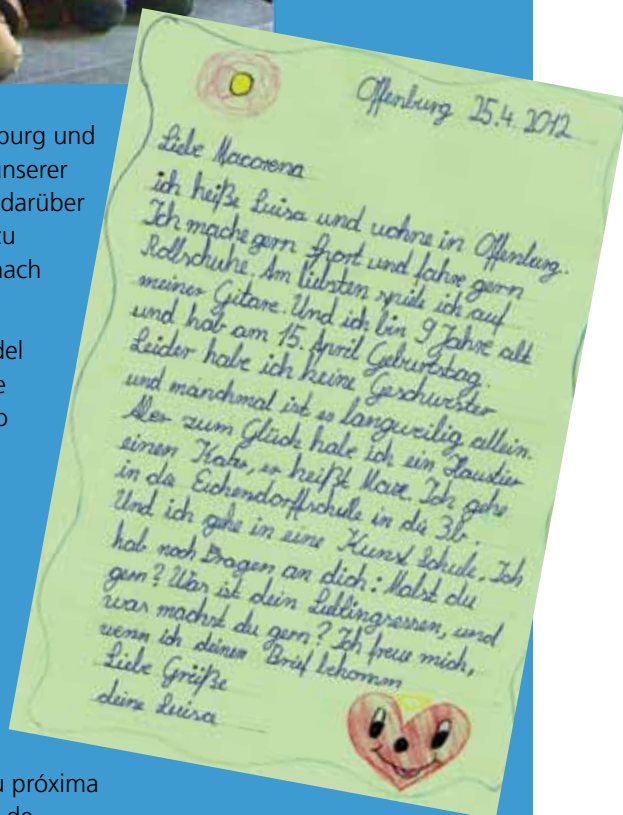 burg und
unserer
darüber
zu
nach
del
e
o
Offenburg 25.4.2012
Liebe Macorena
ich heiße Luisa und wohne in Offenburg.
Ich mache gern Sport und fahre gern
Rollschuhe. Am liebsten spiele ich auf
meiner Gitare. Und ich bin 9 Jahre alt
und hab am 15. April Geburtstag.
Leider habe ich keine Geschwister
und manchmal ist es langweilig allein.
Aber zum Glück habe ich ein Haustier
einen Kater, er heißt Max. Ich gehe
in die Eichendorffschule in die 3b.
Und ich gehe in eine Kunst Schule. Ich
hab noch Fragen an dich: Malst du
gern? Was ist dein Lieblingsessen, und
was machst du gern? Ich freue mich,
wenn ich deinen Brief bekomm
Liebe Grüße
deine Luisa
u próxima
de